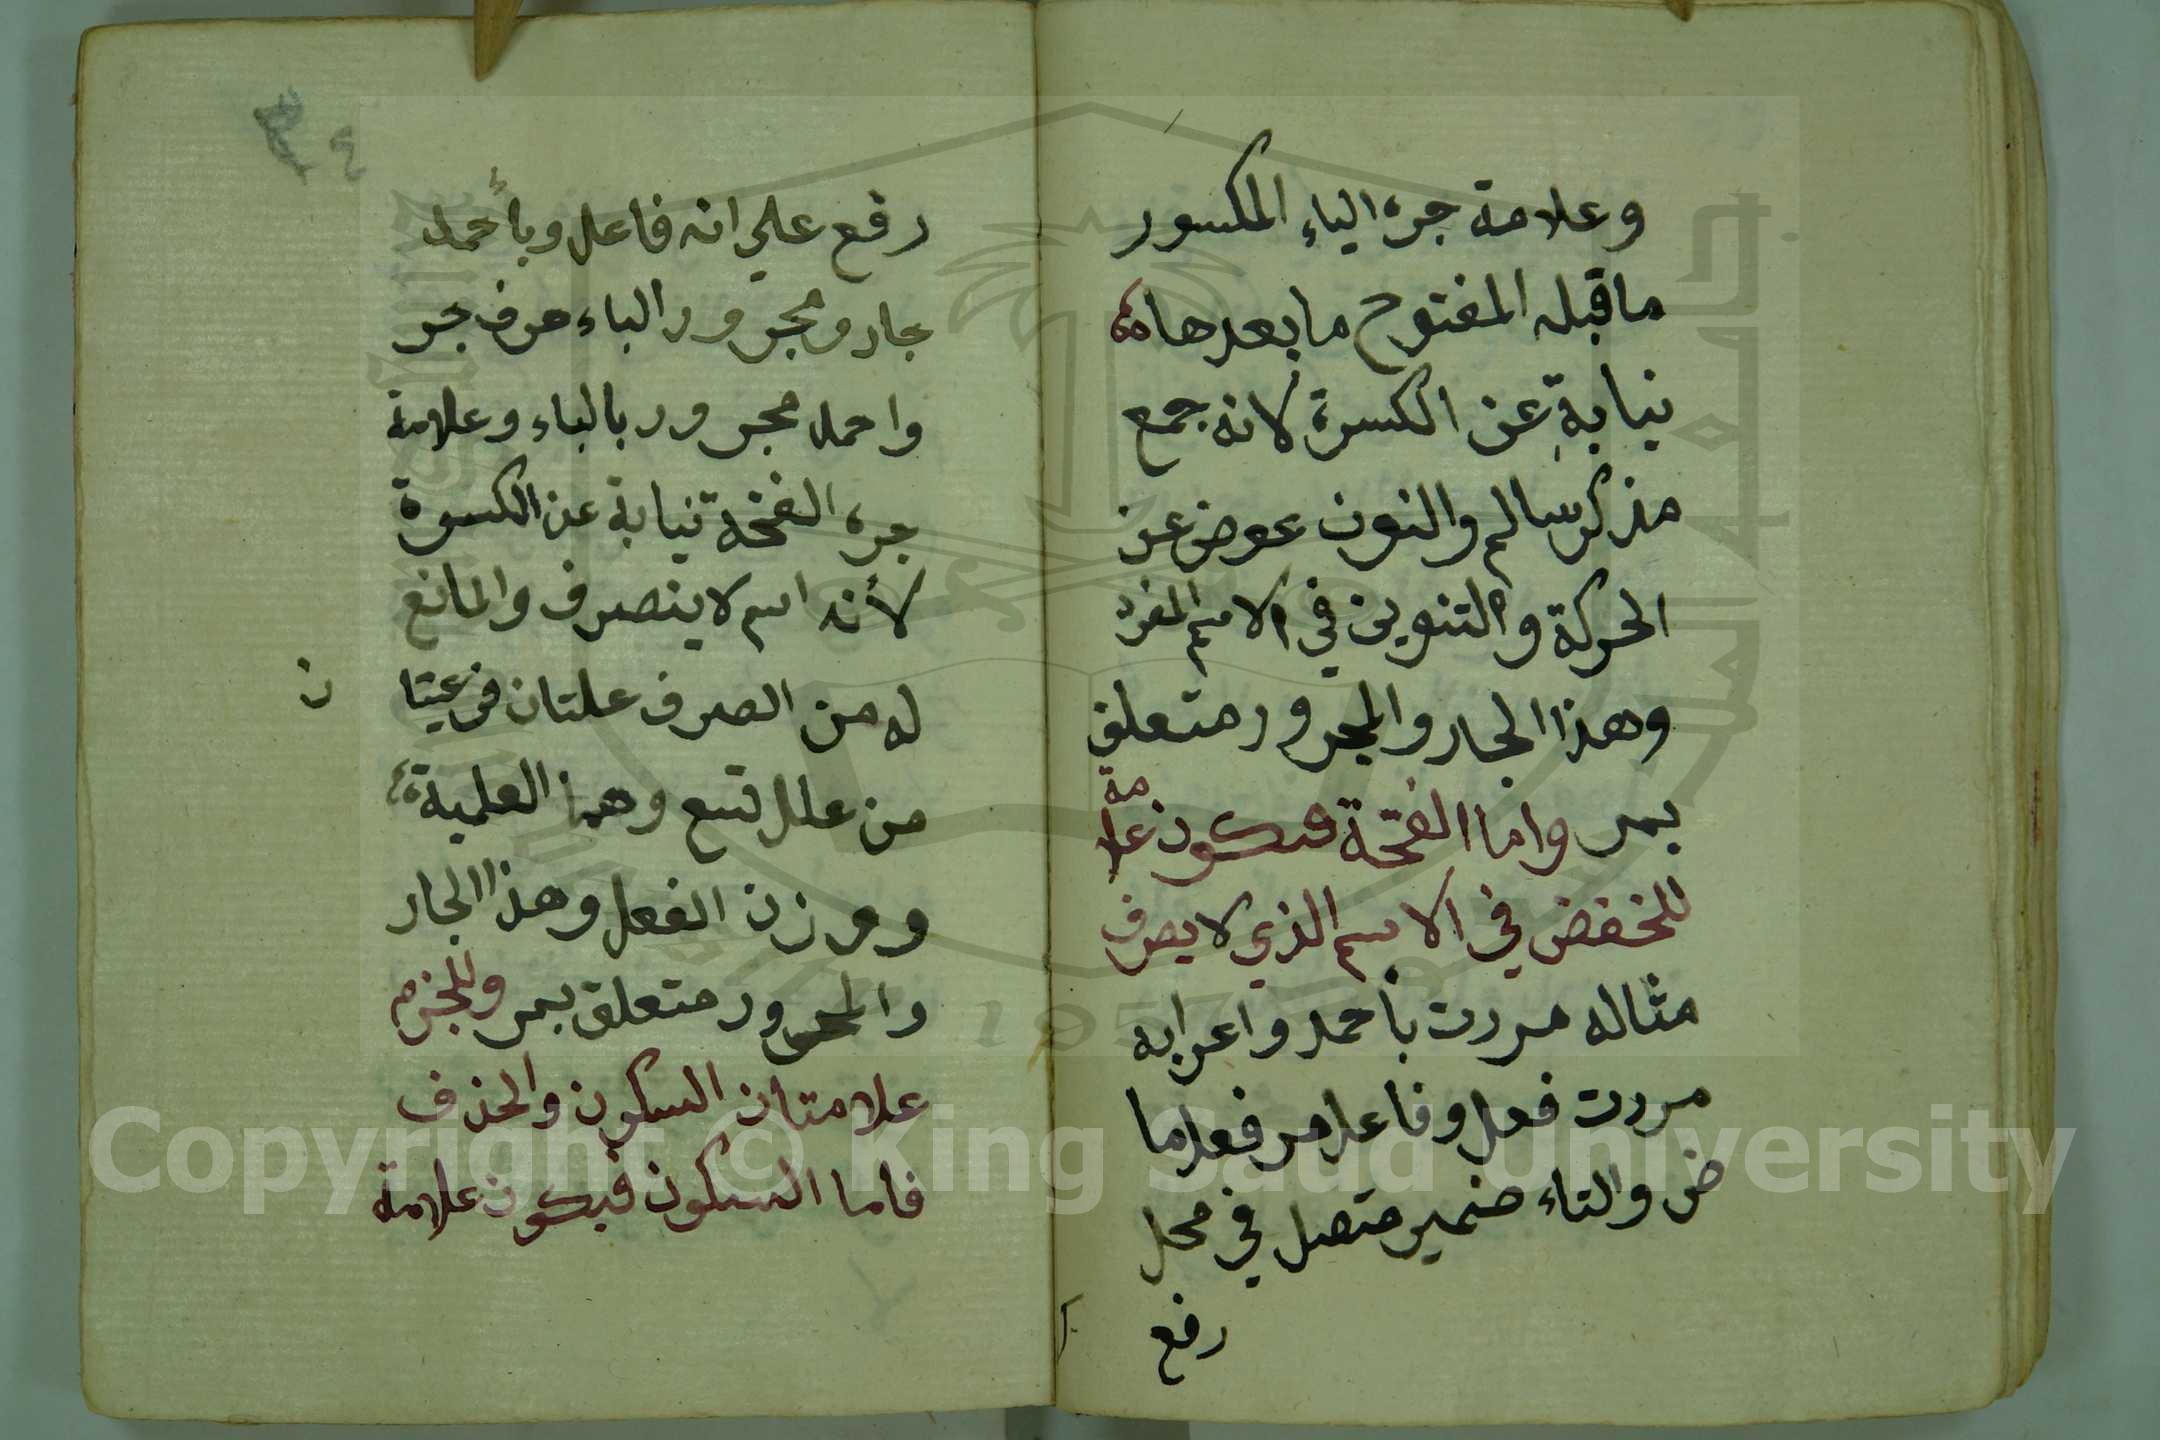 وعلامة جره الياء المكسور
ماقبله المفتوح مابعدها
نيابة عن الكسرة لانه جمع
مذكر سالم والنون عوض عن
الحركة والتنوين في الاسم المفرد
وهذا الجار والمجرور متعلق
بمر واما الفتحة فتكون علامة
للخفض في الاسم الذي لايصرف
مثاله مررت بأحمد واعرابه
مررت فعل وفاعل مر فعل ما
ض والتاء ضمير متصل في محل
رفع
رفع علي انه فاعل وبأحمد
جار ومجرور الباء حرف جر
واحمد مجرور بالباء وعلامة
جره الفتحة نيابة عن الكسرة
لأنه اسم لاينصرف والمانع
له من الصرف علتان فرعيتا
ن
من علل تسع وهما العلمية
ووزن الفعل وهذا الجار
والمجرور متعلق بمر وللجزم
علامتان السكون والحذف
فاما السكون فيكون علامة
Copyright © King Saud University
1957